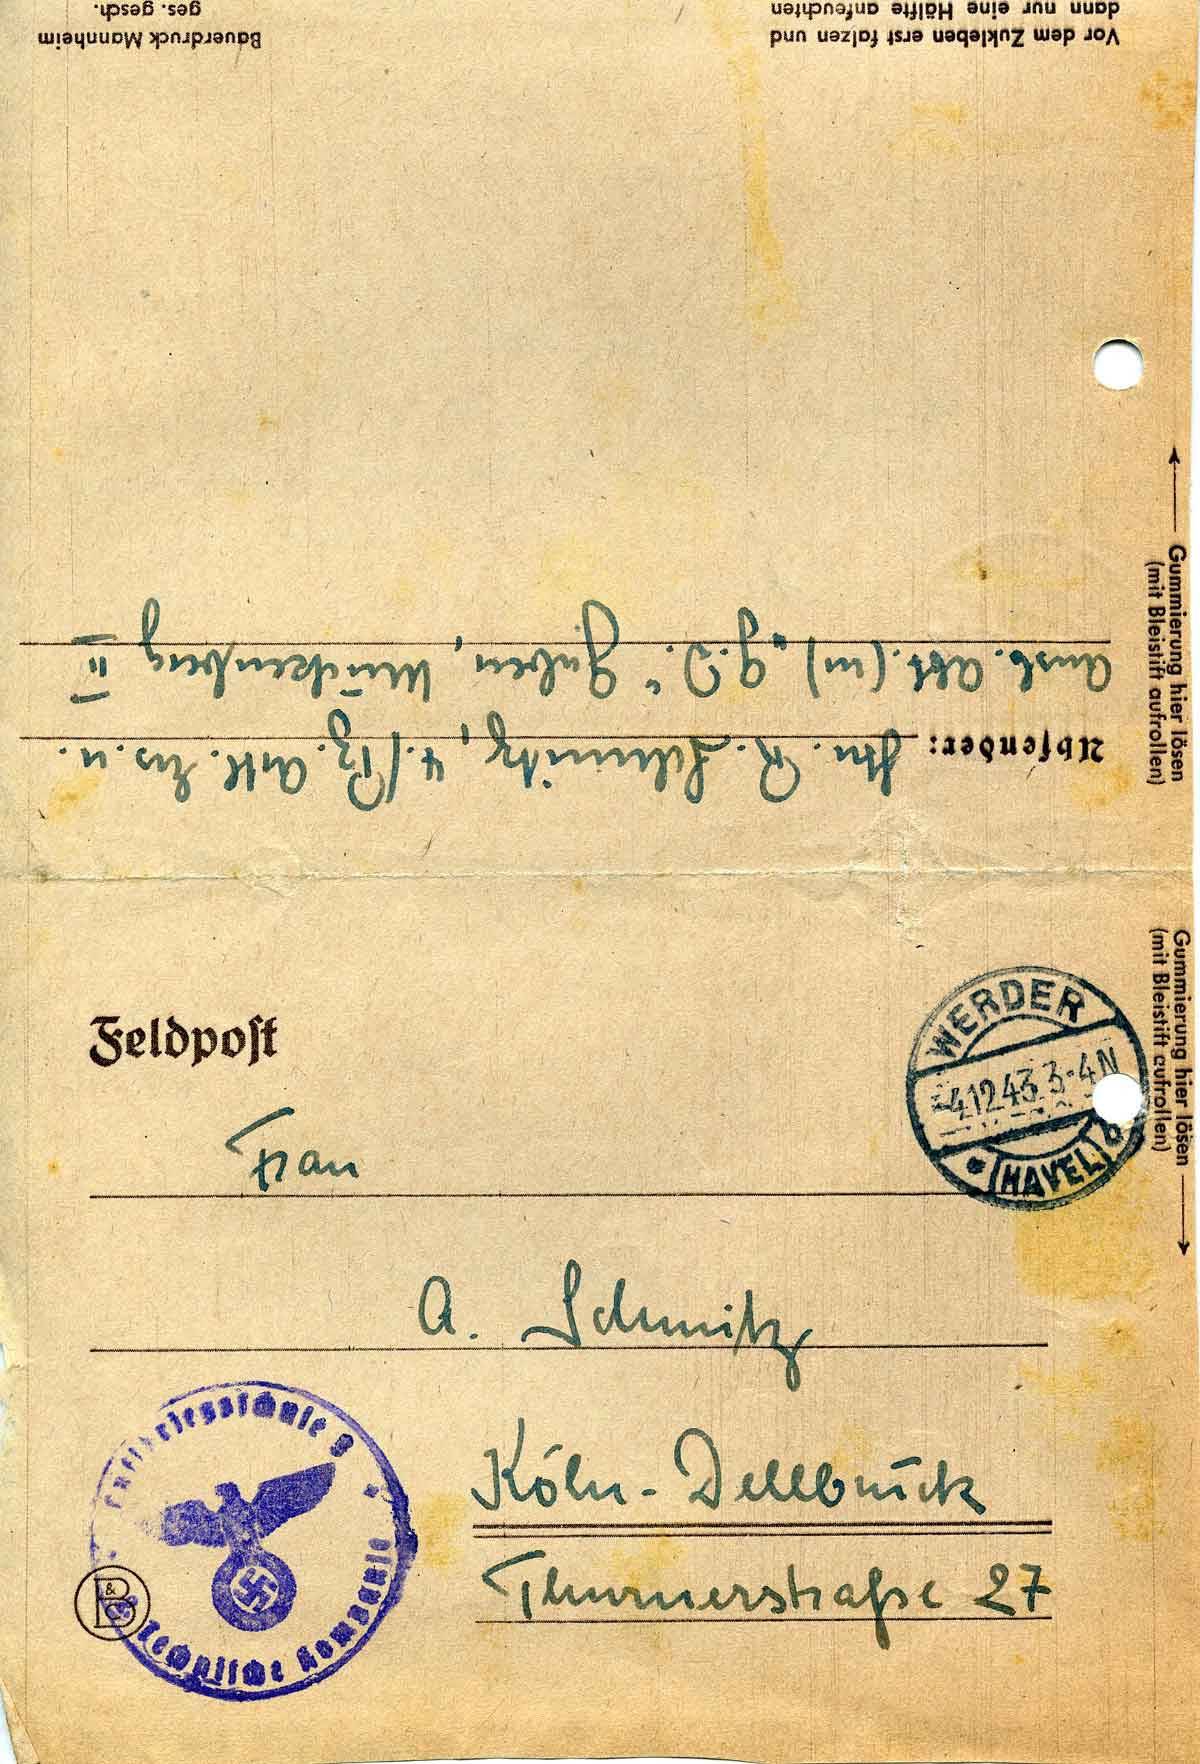 Bauerdruck Mannheim
ges. gesch.
Vor dem Zukleben erst falzen und
dann nur eine Hälfte anfeuchten
Gummierung hier lösen
(mit Bleistift aufrollen)
Absender: R. Schmitz, 4./Pz. Artl. Ers. u.
Ausb. Abt. (m) "G.D." Guben, Mückenberg II
Gummierung hier lösen
(mit Bleistift aufrollen)
Feldpost
WERDER
-4.12.43.3-4N
* (HAVEL)
Frau
A. Schmitz
Köln-Dellbrück
Thurnerstraße 27
Luftkriegsschule
Technische Kompanie
B&C